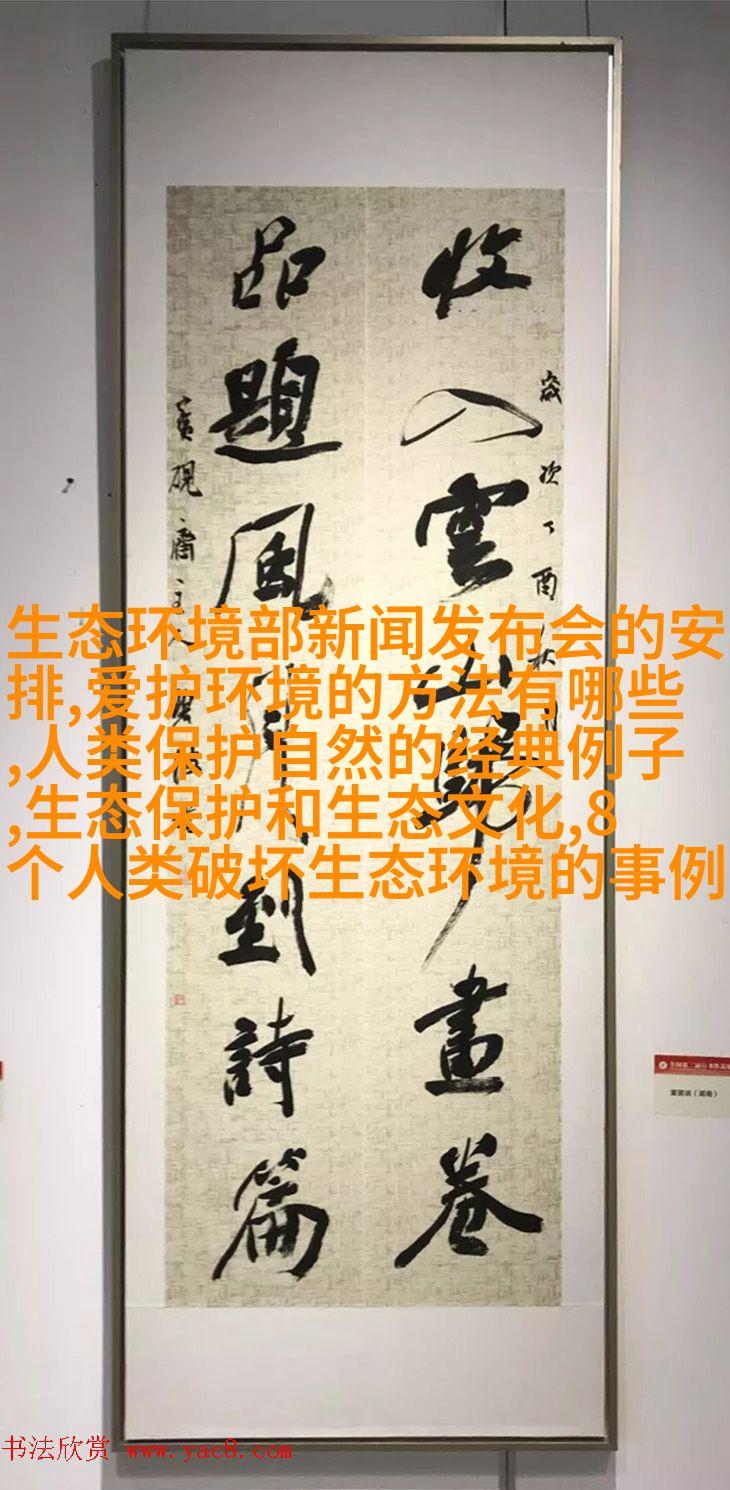 收入雲山歸畫卷
歲次丁酉秋月
品題風月到詩篇
賓硯齋主人
生态环境部新闻发布会的安
排,爱护环境的方法有哪些
,人类保护自然的经典例子
,生态保护和生态文化,8
个人类破坏生态环境的事例
书法欣赏 www.yac8.com